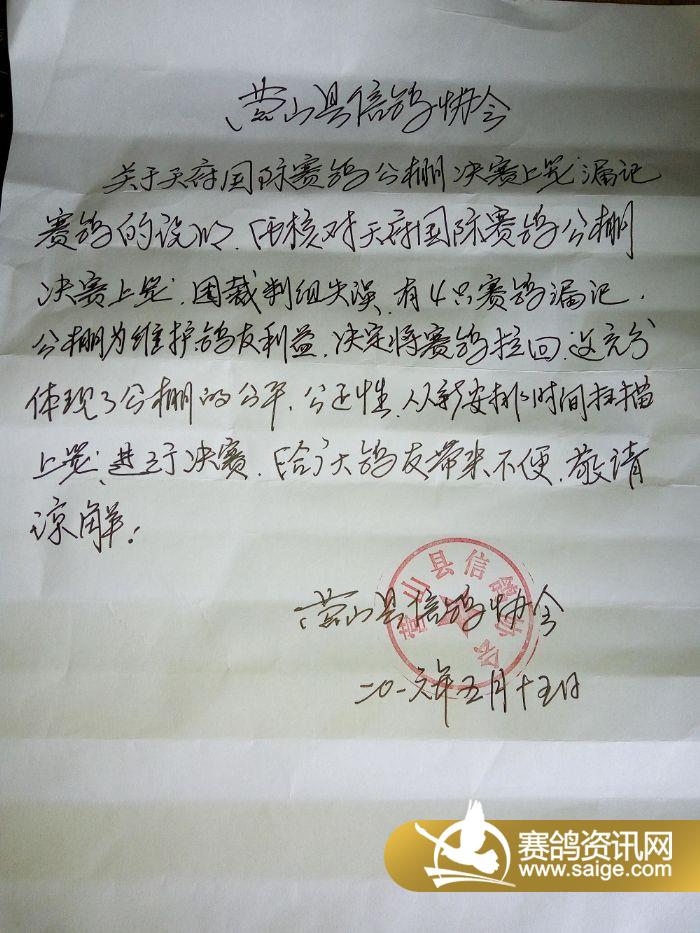 营山县信鸽协会
关于天府国际赛鸽公棚决赛上笼漏记
赛鸽的说明,核对天府国际赛鸽公棚
决赛上笼,因裁判组失误,有4只赛鸽漏记,
公棚为维护鸽友利益,决定将赛鸽拉回,这充分
体现了公棚的公平,公正性,从新安排时间扫描
上笼,进行决赛,给广大鸽友带来不便,敬请
谅解!
营山县信鸽协会
营山县信鸽协会
二〇一六年五月十五日
赛鸽资讯网
www.saige.com